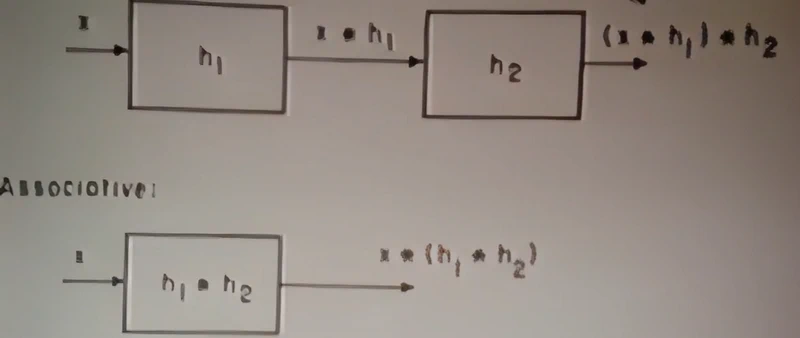 x * h1 (x * h1) * h2
x
h1
h2
Associative:
x
x * (h1 * h2)
h1 * h2